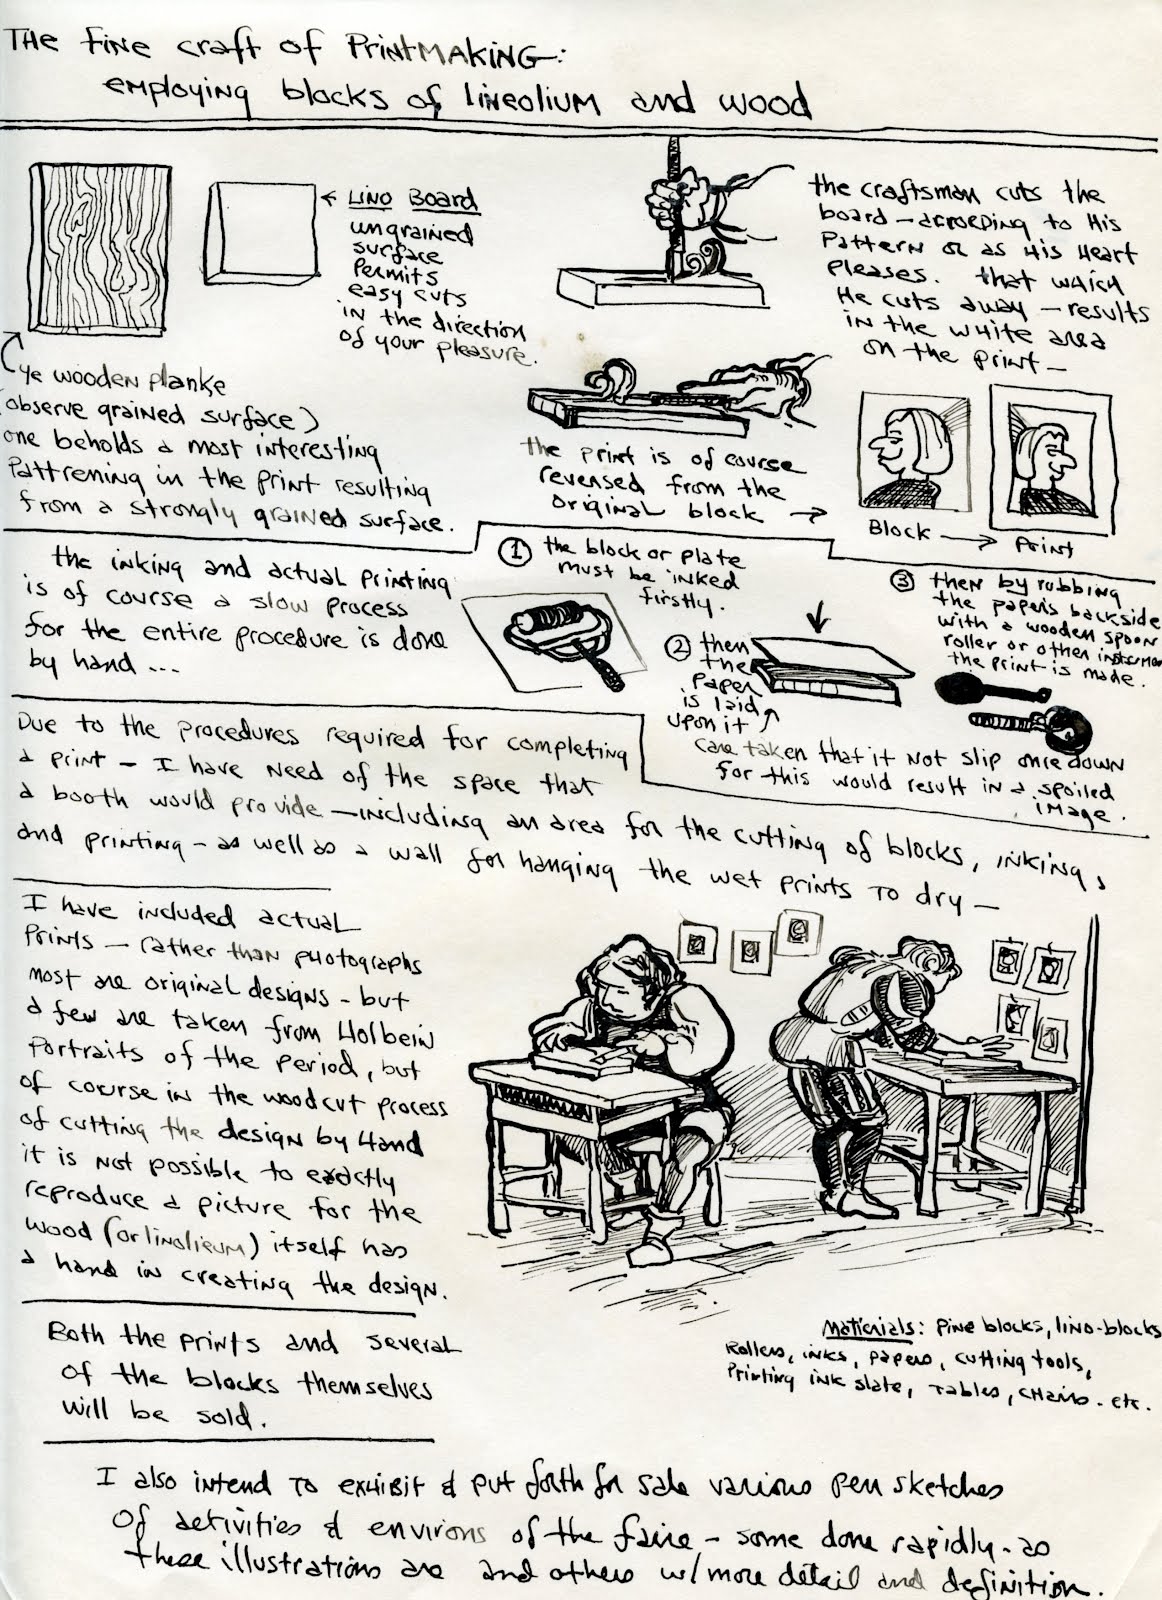 THE fine craft of PRINTMAKING:
employing blocks of lineolium and wood
LINO Board
ungrained
surface
permits
easy cuts
in the direction
of your pleasure.
the craftsman cuts the
board — according to His
Pattern or as His Heart
pleases. that which
He cuts away — results
in the white area
on the print —
ye wooden planke
(observe grained surface)
one beholds a most interesting
Pattrening in the print resulting
from a strongly grained surface.
the print is of course
revensed from the
original block →
Block → Print
the inking and actual printing
is of course a slow process
for the entire procedure is done
by hand ...
① the block or plate
must be inked
firstly.
② then
the
Paper
is laid
upon it
care taken that it not slip once down
for this would result in a spoiled
image.
③ then by rubbing
the paper's backside
with a wooden spoon
roller or other
the print is made.
Due to the procedures required for completing
a print — I have need of the space that
a booth would provide — including an area for the cutting of blocks, inking,
and printing — as well as a wall for hanging the wet prints to dry —
I have included actual
Prints — rather than photographs
most are original designs — but
a few are taken from Holbein
Portraits of the Period, but
of course in the woodcut process
of cutting the design by Hand
it is not possible to exactly
reproduce a picture for the
wood (or linolieum) itself has
a hand in creating the design.
Both the prints and several
of the blocks themselves
will be sold.
Materials: Pine blocks, lino-blocks
Rollers, inks, papers, cutting tools,
Printing ink slate, Tables, . etc.
I also intend to exhibit & put forth for sale various pen sketches
Of activities & environs of the faire — some done rapidly — as
these illustrations are and others w/more detail and definition.